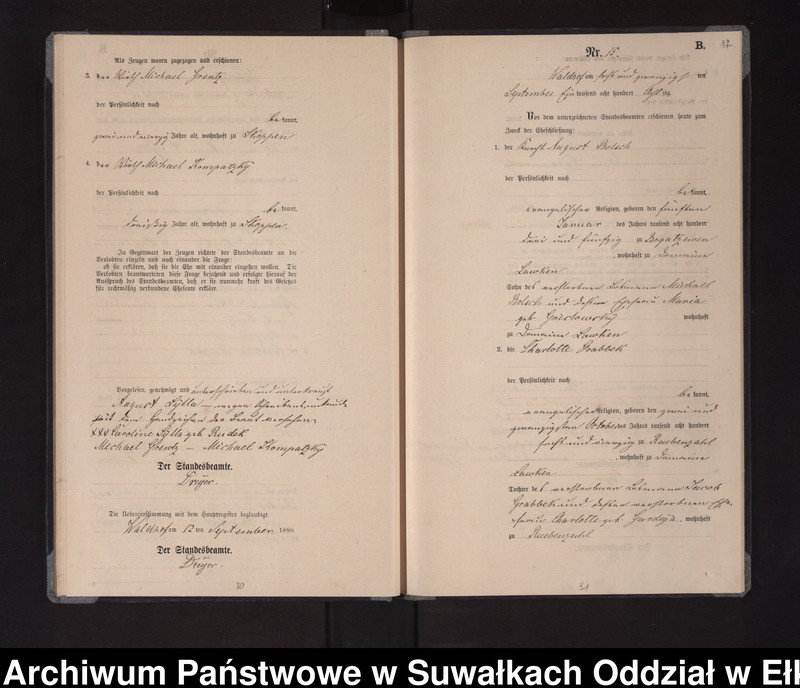 Als Zeugen waren zugezogen und erschienen:
3. der Wirth Michael Grentz
der Persönlichkeit nach
bekannt,
zweiundvierzig Jahre alt, wohnhaft zu Skoppen
4. der Wirth Michael Kompatzky
der Persönlichkeit nach
bekannt,
dreißig Jahre alt, wohnhaft zu Skoppen.
In Gegenwart der Zeugen richtete der Standesbeamte an die
Verlobten einzeln und nach einander die Frage:
ob sie erklären, daß sie die Ehe mit einander eingehen wollen. Die
Verlobten beantworteten diese Frage bejahend und erfolgte hierauf der
Ausspruch des Standesbeamten, daß er sie nunmehr kraft des Gesetzes
für rechtmäßig verbundene Eheleute erkläre.
Vorgelesen, genehmigt und unterschrieben und unterkreuzt
August Sylla – wegen
mit dem Handzeichen der Braut versehen.
+++ Caroline Sylla geb. Rudek
Michael Grentz – Michael Kompatzky
Der Standesbeamte.
Dreyer.
Die Uebereinstimmung mit dem Hauptregister beglaubigt.
am 12 ten September 1880.
Der Standesbeamte.
Dreyer.
30
B.
17
Nr. 15.
am sechs und zwanzigsten
September Ein tausend acht hundert achtzig
Vor dem unterzeichneten Standesbeamten erschienen heute zum
Zweck der Eheschließung:
1. der Knecht August
der Persönlichkeit nach
bekannt,
evangelischer Religion, geboren den fünften
Januar des Jahres tausend acht hundert
drei und fünfzig zu Bogatzewen
, wohnhaft zu Domaine
Lawken
Sohn des verstorbenen Losmann Michael
und dessen Ehefrau Maria
geb. wohnhaft
zu Domaine Lawken
2. die Charlotte Grabbek
der Persönlichkeit nach
bekannt,
evangelischer Religion, geboren den zwei und
zwanzigsten Oktober des Jahres tausend acht hundert
sechs und vierzig zu Ruebenzahl
, wohnhaft zu Domaine
Lawken
Tochter des verstorbenen Losmann Jacob
Grabbek und dessen verstorbenen Ehe-
frau Charlotte geb. wohnhaft
zu Ruebenzahl
31
Archiwum Państwowe w Suwałkach Oddział w Ełk